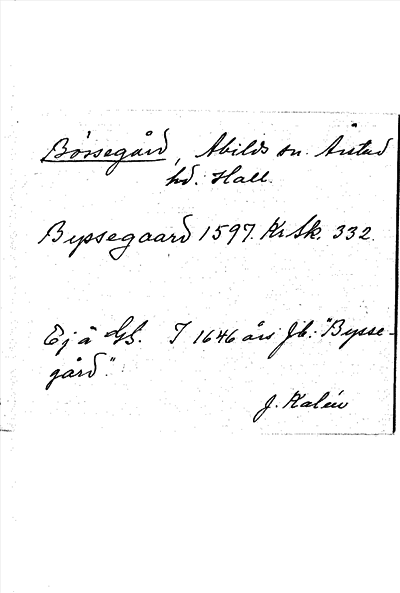 Börsegård, Abilds sn. Årstad
hd. Hall.
Byssegaard 1597. Kr Sk. 332.
Ej å GS. I 1646 års Jb.: "Bysse-
gård."
J. Kalén